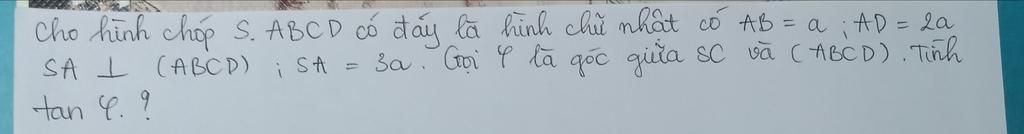 Cho hình chóp S. ABCD có đáy là hình chữ nhật có AB = a ; AD = 2a
SA ⊥ (ABCD) ; SA = 3a. Gọi φ là góc giữa SC và (ABCD). Tính
tan φ. ?